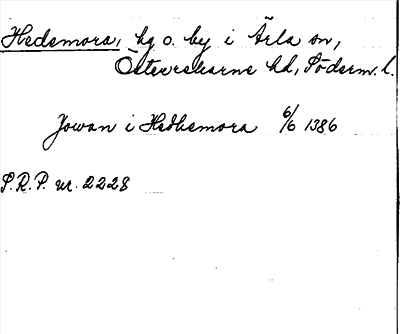 Hedemora, hg o. by i Ärla sn,
Österrekarne hd, Söderm. l.
Jowan i Hedhemora 6/6 1386
S.R.P. nr. 2228